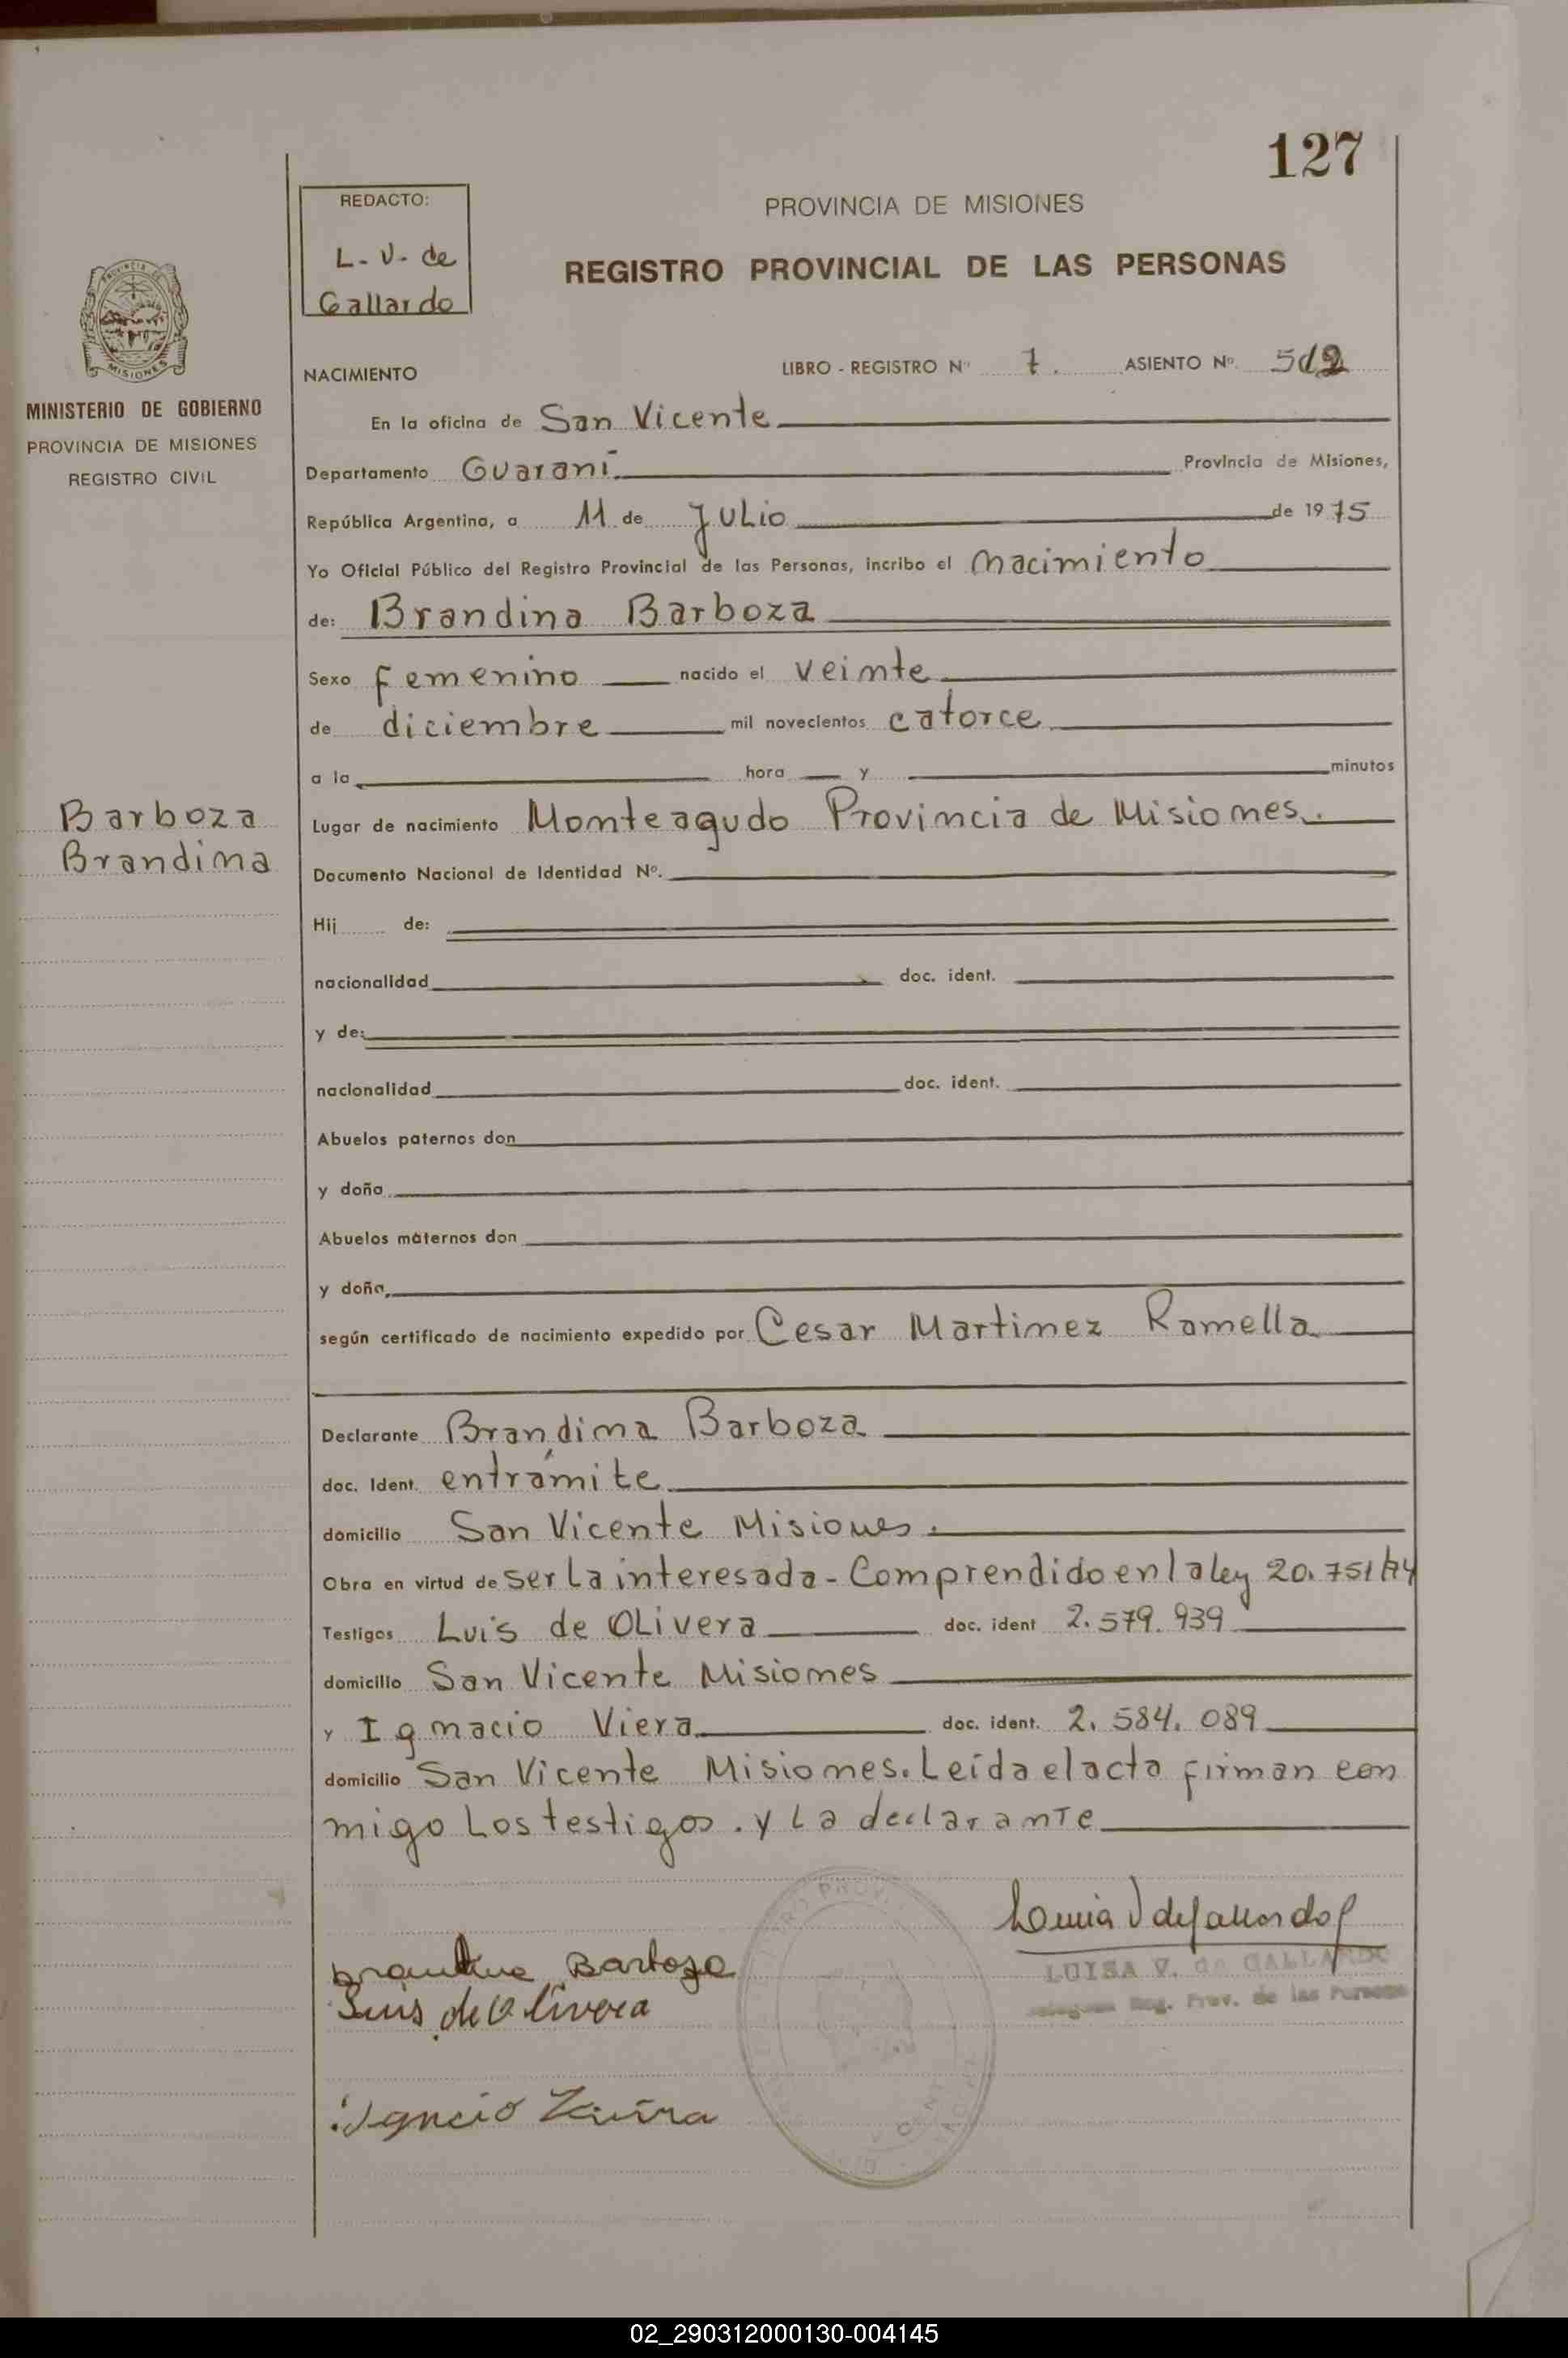 127
REDACTO:
L. V. de
Gallardo
PROVINCIA DE MISIONES
REGISTRO PROVINCIAL DE LAS PERSONAS
MISIONES
MINISTERIO DE GOBIERNO
PROVINCIA DE MISIONES
REGISTRO CIVIL
NACIMIENTO LIBRO - REGISTRO Nº 7. ASIENTO Nº.
En la oficina de San Vicente
Departamento Guaraní Provincia de Misiones,
República Argentina, a 11 de Julio de 1975
Yo Oficial Público del Registro Provincial de las Personas, incribo el nacimiento
de: Brandina Barboza
Sexo Femenino nacido el veinte
de diciembre mil novecientos catorce
a la hora y minutos
Barboza
Brandina
Lugar de nacimiento Monteagudo Provincia de Misiones.
Documento Nacional de Identidad Nº.
Hij de:
nacionalidad doc. ident.
y de:
nacionalidad doc. ident.
Abuelos paternos don
y doña
Abuelos maternos don
y doña
según certificado de nacimiento expedido por Cesar Martinez Ramella
Declarante Brandina Barboza
doc. Ident. entrámite
domicilio San Vicente Misiones.
Obra en virtud de ser La interesada - Comprendido en la ley 20.751/74
Testigos Luis de Olivera doc. ident 2.579.939
domicilio San Vicente Misiones
y Ignacio Viera doc. ident. 2.584.089
domicilio San Vicente Misiones. Leída el acta firman con
migo Los testigos. y La declarante
Barboza
Luis de Olivera
LUISA V. de GALLARDO
Reg. Prov. de las Personas
02_290312000130-004145